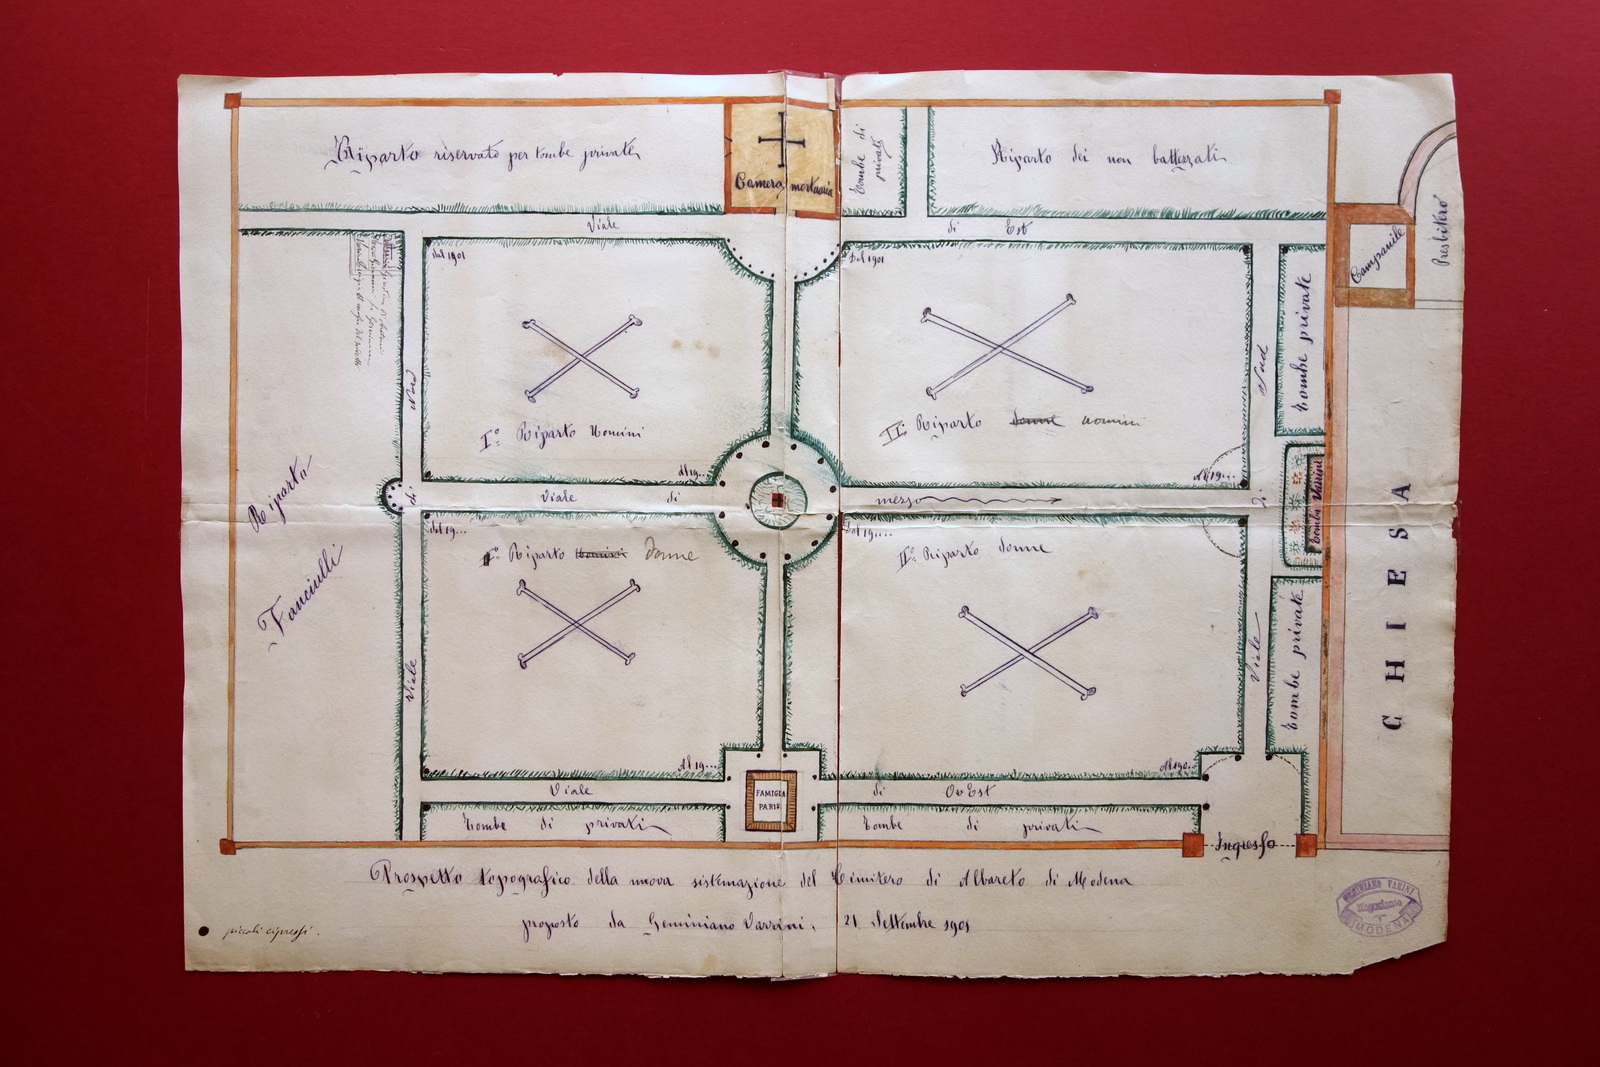 Riparto riservato per tombe private
Camera mortuaria
Tombe di
private
Riparto dei non battezzati
Campanile
Presbitero
Viale di Est
Dal 1901
Dal 1901
Iº Riparto Uomini
II. Riparto donne uomini
Al 19...
Al 19...
Nord
Sud
Tombe private
Viale di
mezzo
di
di
Tomba Varini
CHIESA
Riparto
Fanciulli
Dal 19...
Dal 19....
Iº Riparto Uomini donne
IIº Riparto donne
Viale
Viale
Tombe private
Al 19...
Al 190.
Viale di OvEst
FAMIGLIA
PARIS
Tombe di privati
Tombe di privati
Ingresso
Prospetto topografico della nuova sistemazione del Cimitero di Albareto di Modena
proposto da Geminiano Varrini, 21 Settembre 1901
piccoli cipressi.
GEMINIANO VARINI
Negoziante
MODENA